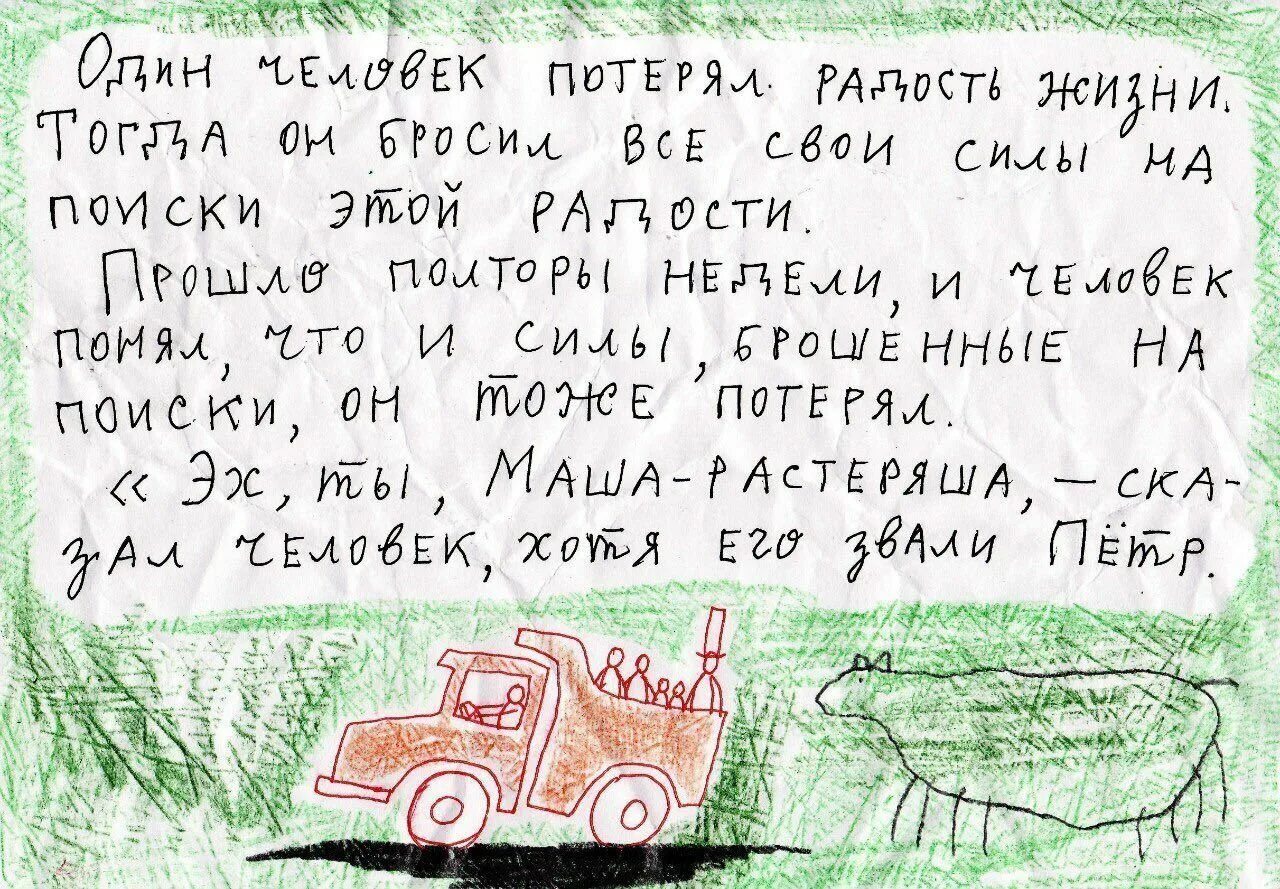 Один человек потерял радость жизни.
Тогда он бросил все свои силы на
поиски этой радости.
Прошло полторы недели, и человек
понял, что и силы, брошенные на
поиски, он тоже потерял.
« Эх, ты, Маша-растеряша, — ска-
зал человек, хотя его звали Пётр.